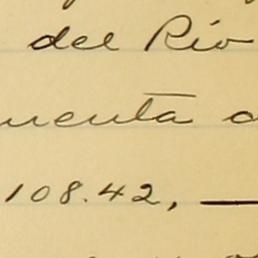 del Rio
menta
108.42,